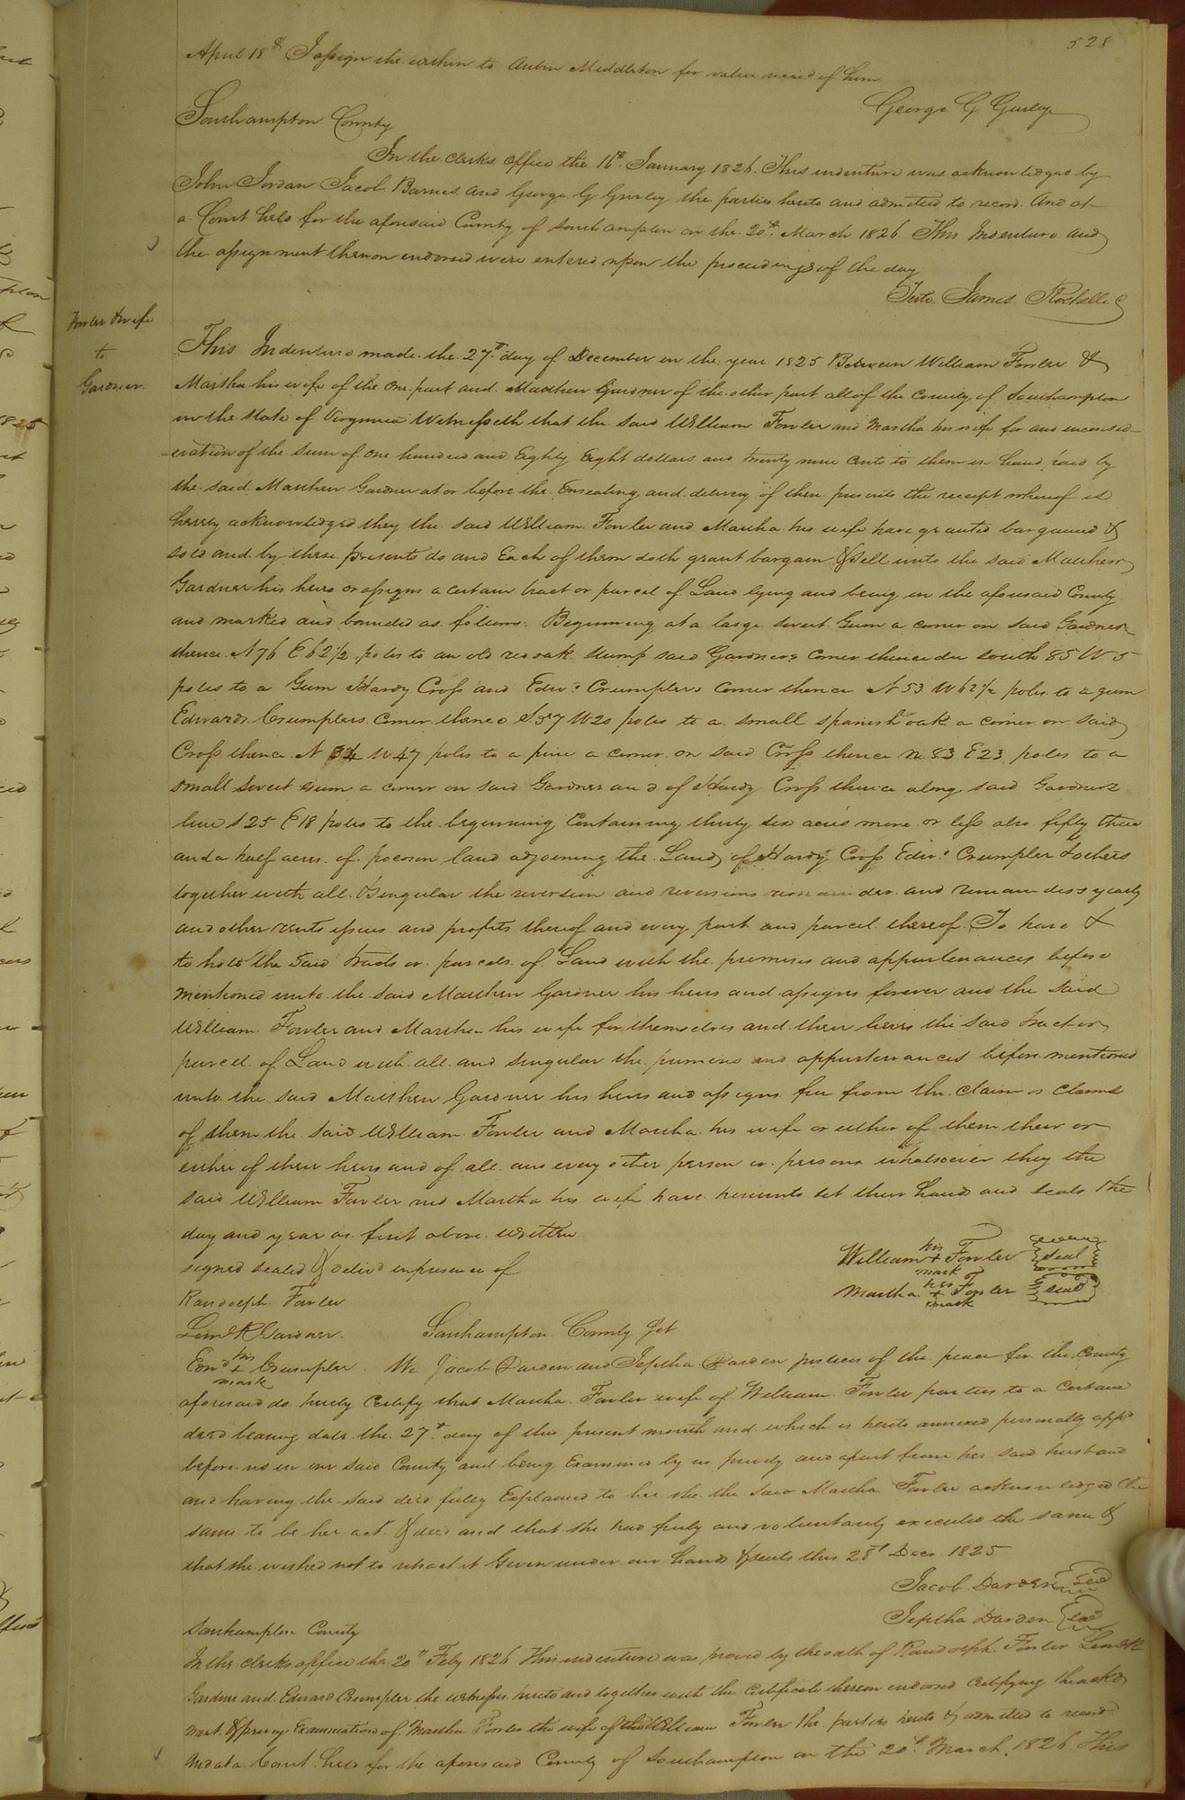 528
April 18th I assign the within to Meddleton for value recied of him
George G Gurley
Southampton County
In the clerks office the 16th January 1826 This indenture was acknowledged by
John Jordan Jacob Barnes and George G Gurley the parties hereto and admitted to record. And at
a Court held for the aforesaid County of Southampton on the 20th March 1826 This Indenture and
the assignment thereon endorsed were entered upon the proceedings of the day
Teste James Rochelle C
Fowler & wife
to
Gardner
This Indenture made the 27th day of December in the year 1825 Between William Fowler &
Martha his wife of the one part and Matthew Gardner of the other part all of the County of Southampton
in the State of Virginia Witnesseth that the said William Fowler and Martha his wife for and inconsid-
-eration of the sum of one hundred and Eighty Eight dollars and twenty nine cents to them in hand paid by
the said Matthew Gardner at or before the Ensealing and delivery of these presents the receipt whereof is
hereby acknowledged they the said William Fowler and Martha his wife have granted bargained &
sold and by these presents do and Each of them doth grant bargain & sell unto the said Matthew
Gardner his heirs or assigns a certain tract or parcel of Land lying and being in the aforesaid County
and marked and bounded as follows. Beginning at a large sweet Gum a corner on said Gardner
thence N 76 E 62 1/2 poles to an old red oak stump said Gardners corner thence du south 85 W 5
poles to a Gum Hardy Cross and Edwd Crumplers corner thence N 53 W 62 1/2 poles to a gum
Edwards Crumplers corner thence S 57 W 20 poles to a small spanish oak a corner on said
Cross thence N 34 W 47 poles to a pine a corner on said Cross thence N 83 E 23 poles to a
small sweet gum a corner on said Gardner and of Hardy Cross thence along said Gardners
line S 25 E 18 poles to the beginning Containing thirty six acres more or less also fifty three
and a half acres of pocoson land adjoining the Land of Hardy Cross Edwd Crumpler & others
together with all & singular the reversion and reversions remainder and remainders yearly
and other rents issues and profits thereof and every part and parcel thereof To have &
to hold the said tracts or parcels of Land with the premises and appurtenances before
mentioned unto the said Matthew Gardner his heirs and assigns forever and the said
William Fowler and Martha his wife for themselves and their heirs the said tract or
parcel of Land with all and singular the premises and appurtenances before mentioned
unto the said Matthew Gardner his heirs and assigns free from the claim or claims
of them the said William Fowler and Martha his wife or either of them their or
either of their heirs and of all and every other person or persons whatsoever they the
said William Fowler and Martha his wife have hereunto set their hands and seals the
day and year as first above written
signed sealed & delivd in presence of
William his + mark Fowler seal
Martha her + mark Fowler seal
Randolph Fowler
Leml R Gardner
Southampton County Sct
Edwd his + mark Crumpler We Jacob Darden and Jeptha Darden justices of the peace for the County
aforesaid do hereby Certify that Martha Fowler wife of William Fowler parties to a Certain
deed bearing date the 27th day of this present month and which is hereto annexed personally appd
before us in our said County and being Examined by us privily and apart from her said husband
and having the said deed fully Explained to her she the said Martha Fowler acknowledged the
same to be her act & deed and that she had freely and voluntarily executed the same &
that she wished not to retract it Given under our hands & seals this 28th Decr 1825
Jacob Darden seal
Jeptha Darden seal
Southampton County
In the clerks office the 20th Feby 1826 This indenture was proved by the oath of Randolph Fowler Leml R
Gardner and Edward Crumpler the witnesses hereto and together with the Certificate thereon endorsed Certifying the acknow
ment & privy Examination of Martha Fowler the wife of the William Fowler the parties hereto & admitted to record
And at a Court held for the aforesaid County of Southampton on the 20th March 1826 This